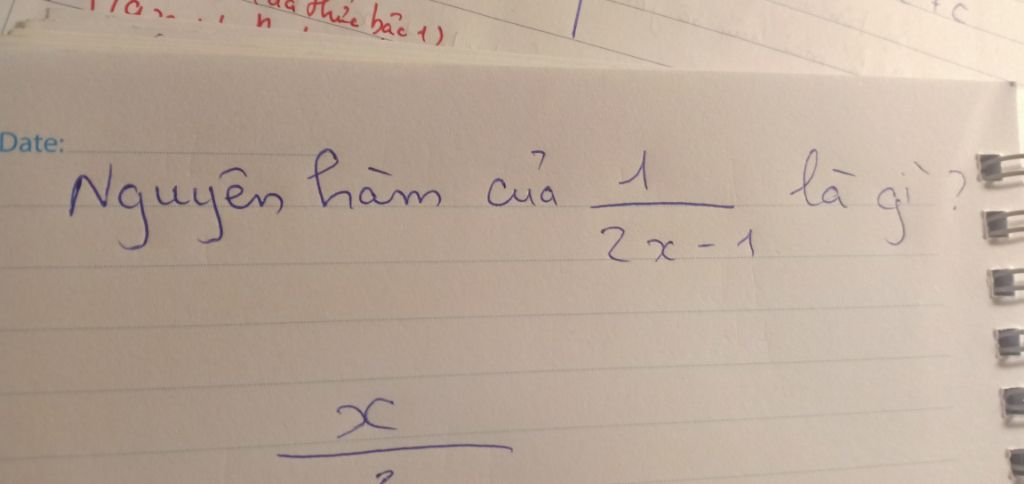 thức bậc 1)
+ C
Date:
Nguyên hàm của 1/(2x - 1) là gì?
x